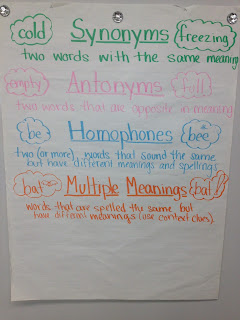 cold Synonyms freezing
two words with the same meaning
empty Antonyms full
two words that are opposite in meaning
be Homophones bee
two (or more) words that sound the same
but have different meanings and spellings
bat Multiple Meanings bat
words that are spelled the same but
have different meanings (use context clues)